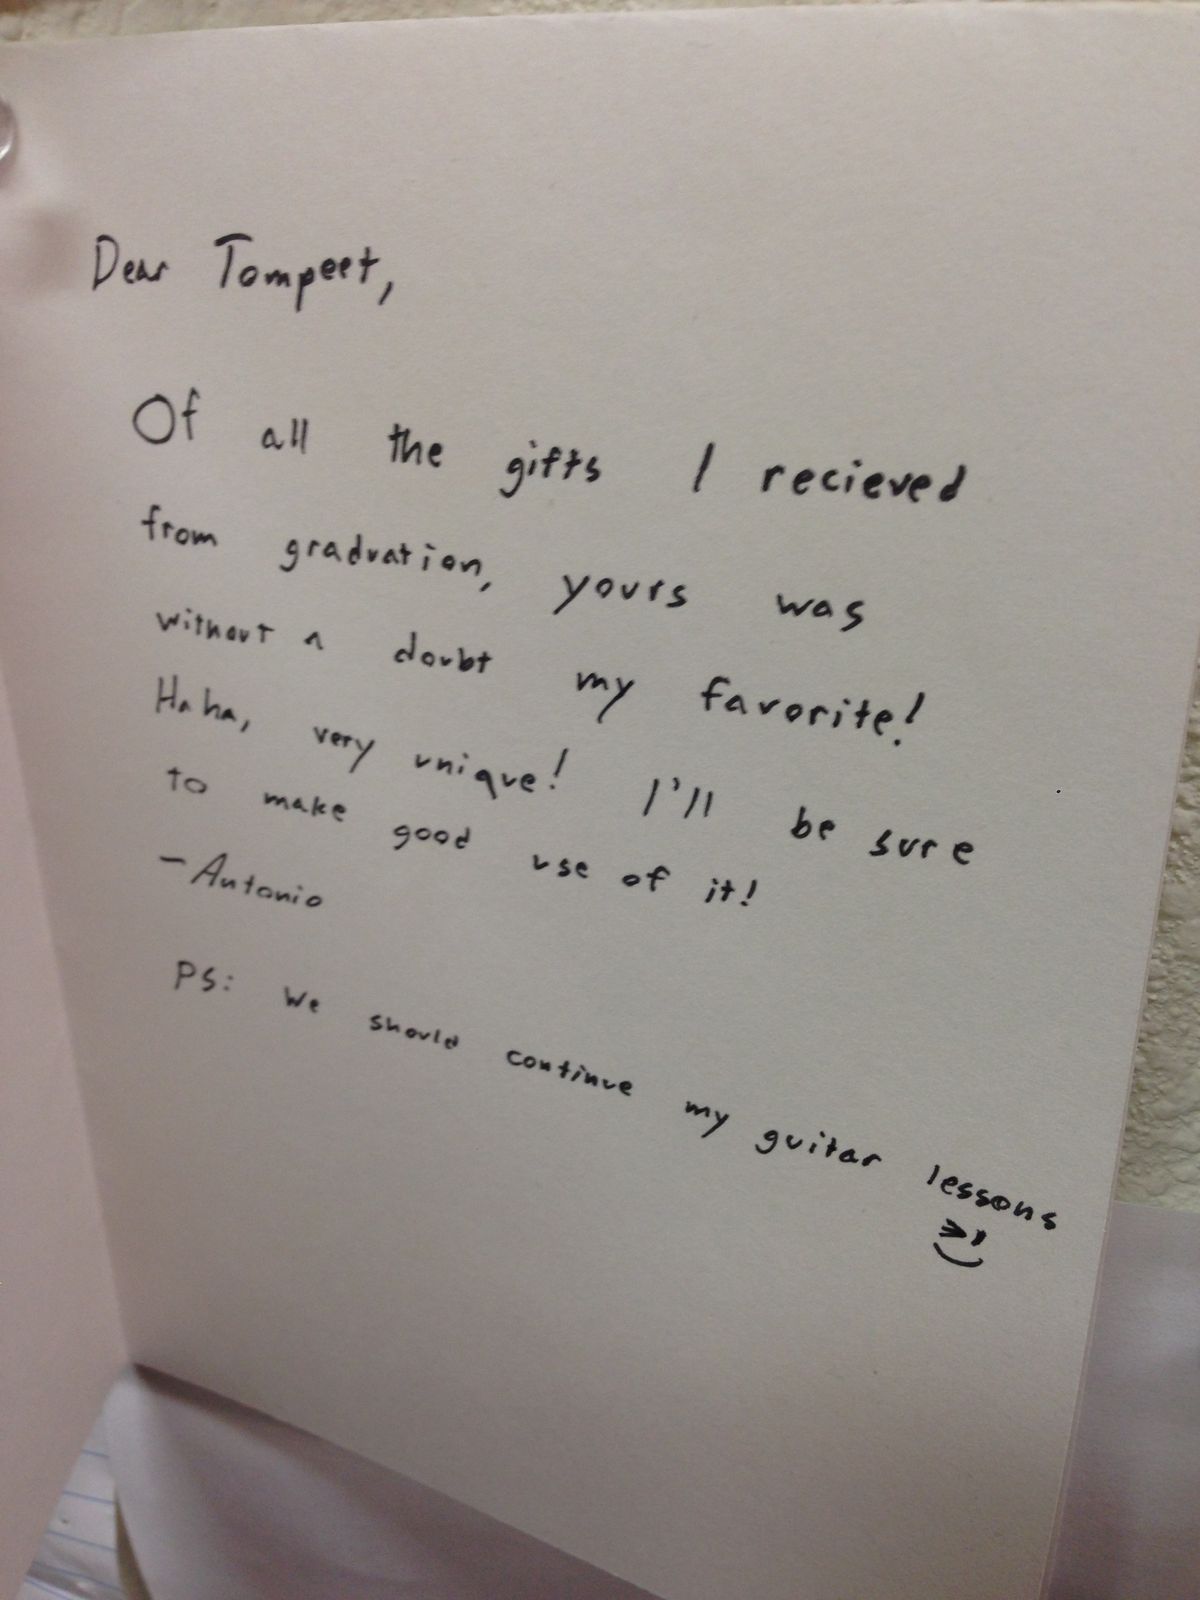 Dear Tompeet,
Of all the gifts I recieved
from graduation, yours was
without a doubt my favorite!
Haha, very unique! I'll be sure
to make good use of it!
- Antonio
PS: We should continue my guitar lessons